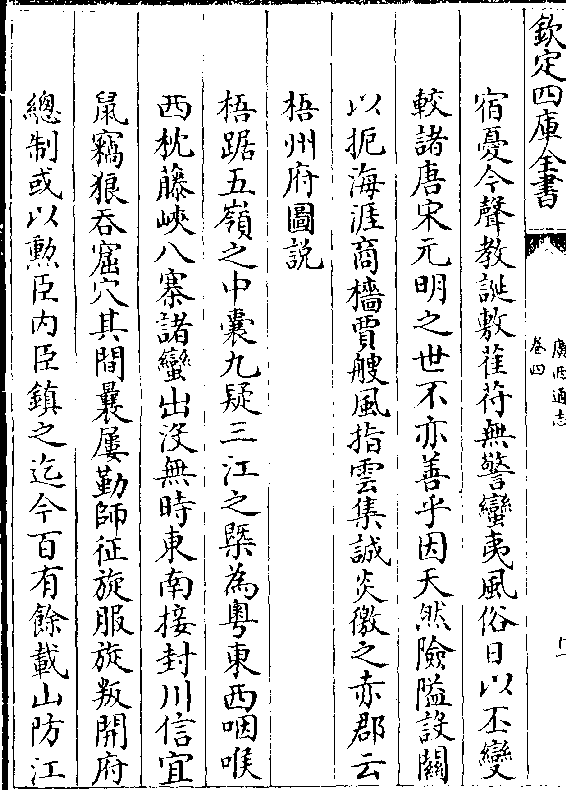 欽定四庫全書
廣西通志
卷四
宿憂今聲教誕敷萑苻無警蠻夷風俗日以丕變
較諸唐宋元明之世不亦善乎因天然險隘設關
以扼海涯商檣賈艘風指雲集誠炎徼之赤郡云
梧州府圖説
梧踞五嶺之中囊九疑三江之槩為粵東西咽喉
西枕藤峽八寨諸蠻出沒無時東南接封川信宜
鼠竊狼吞窟穴其間曩屢勤師征旋服旋叛開府
總制或以勲臣内臣鎮之迄今百有餘載山防江